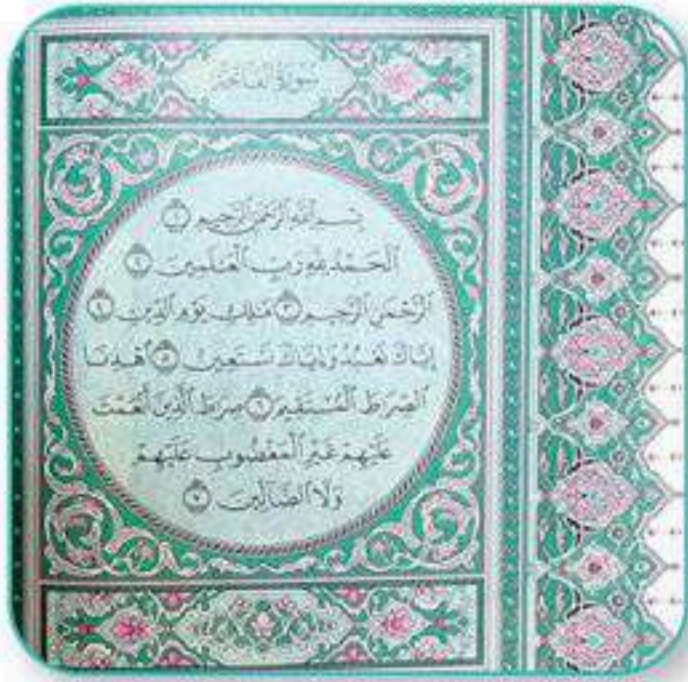 سورة الفاتحة
بِسْمِ ٱللَّهِ ٱلرَّحْمَٰنِ ٱلرَّحِيمِ ١
ٱلْحَمْدُ لِلَّهِ رَبِّ ٱلْعَٰلَمِينَ ٢
ٱلرَّحْمَٰنِ ٱلرَّحِيمِ ٣ مَٰلِكِ يَوْمِ ٱلدِّينِ ٤
إِيَّاكَ نَعْبُدُ وَإِيَّاكَ نَسْتَعِينُ ٥ ٱهْدِنَا
ٱلصِّرَٰطَ ٱلْمُسْتَقِيمَ ٦ صِرَٰطَ ٱلَّذِينَ أَنْعَمْتَ
عَلَيْهِمْ غَيْرِ ٱلْمَغْضُوبِ عَلَيْهِمْ
وَلَا ٱلضَّآلِّينَ ٧